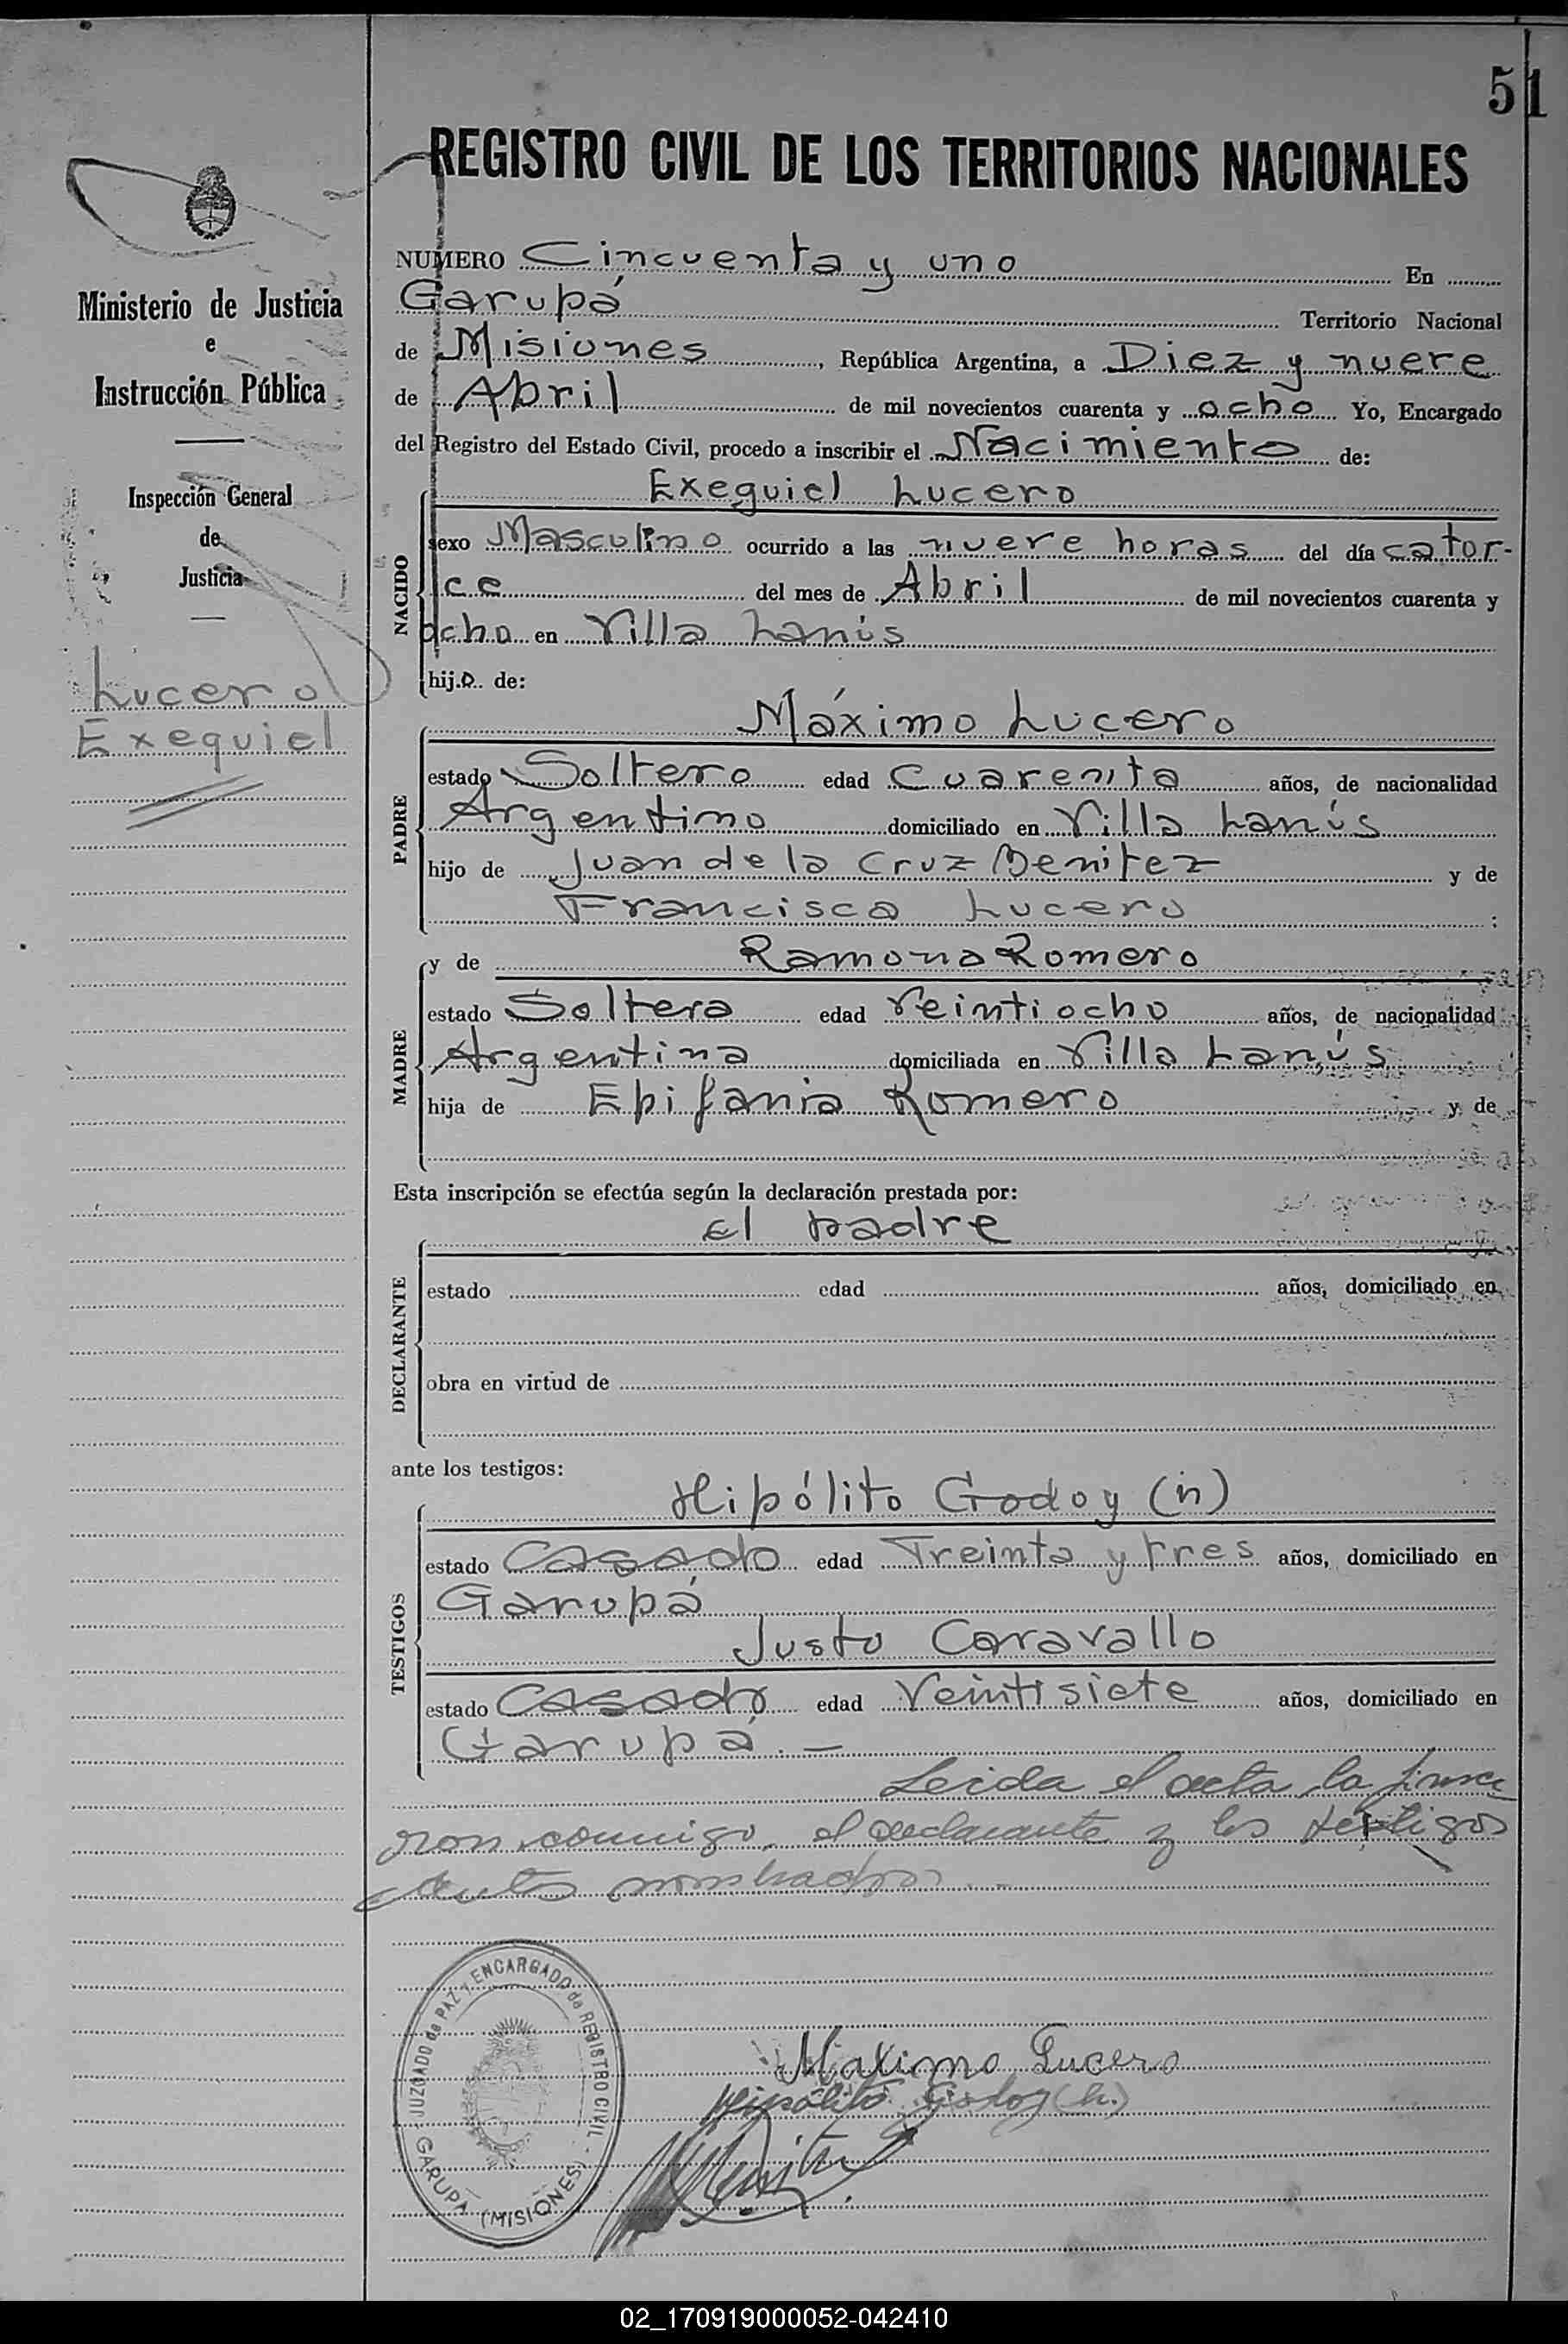 51
REGISTRO CIVIL DE LOS TERRITORIOS NACIONALES
Ministerio de Justicia
e
Instrucción Pública
Inspección General
de
Justicia
Lucero
Exequiel
NUMERO Cincuenta y uno En
Garupá Territorio Nacional
de Misiones, República Argentina, a Diez y nueve
de Abril de mil novecientos cuarenta y ocho Yo, Encargado
del Registro del Estado Civil, procedo a inscribir el Nacimiento de:
NACIDO
Exequiel Lucero
sexo Masculino ocurrido a las nueve horas del día cator-
ce del mes de Abril de mil novecientos cuarenta y
ocho en Villa Lanús
hijo de:
PADRE
Máximo Lucero
estado Soltero edad Cuarenta años, de nacionalidad
Argentino domiciliado en Villa Lanús
hijo de Juan de la Cruz Benitez y de
Francisca Lucero :
MADRE
y de Ramona Romero
estado Soltera edad Veintiocho años, de nacionalidad
Argentina domiciliada en Villa Lanús
hija de Epifania Romero y de
Esta inscripción se efectúa según la declaración prestada por:
El padre
DECLARANTE
estado edad años, domiciliado en
obra en virtud de
ante los testigos:
TESTIGOS
Hipólito Godoy (h)
estado Casado edad Treinta y tres años, domiciliado en
Garupá
Justo Caravallo
estado Casado edad Veintisiete años, domiciliado en
Garupá. —
Leida el acta la firma
ron conmigo, el declarante y los testigos
antes nombrados. -
JUZGADO de PAZ y ENCARGADO de REGISTRO CIVIL -
GARUPA (MISIONES)
Maximo Lucero
Hipólito Godoy (h.)
02_170919000052-042410